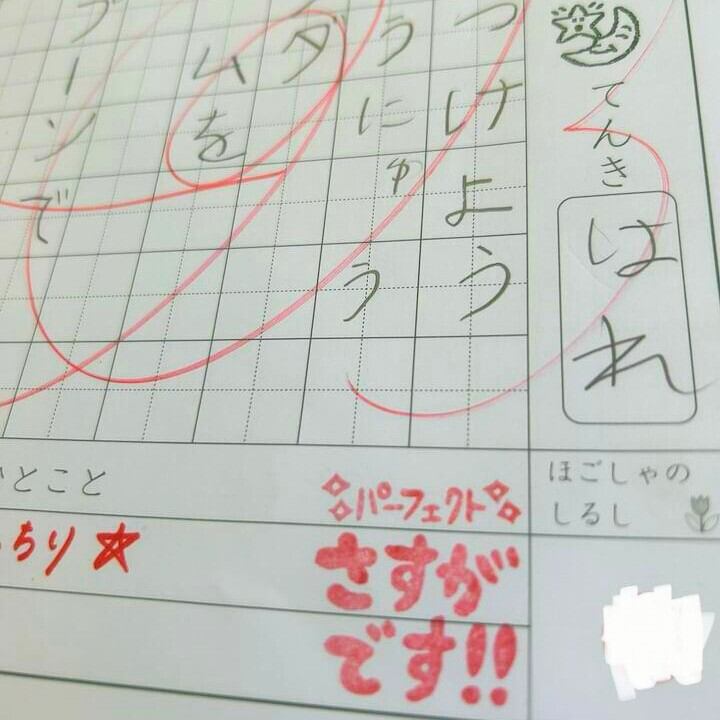 てんき
はれ
つけよう
うにゅう
ダ
ムを
ブーンで
ひとこと
ちり☆
パーフェクト
さすが
です!!
ほごしゃの
しるし